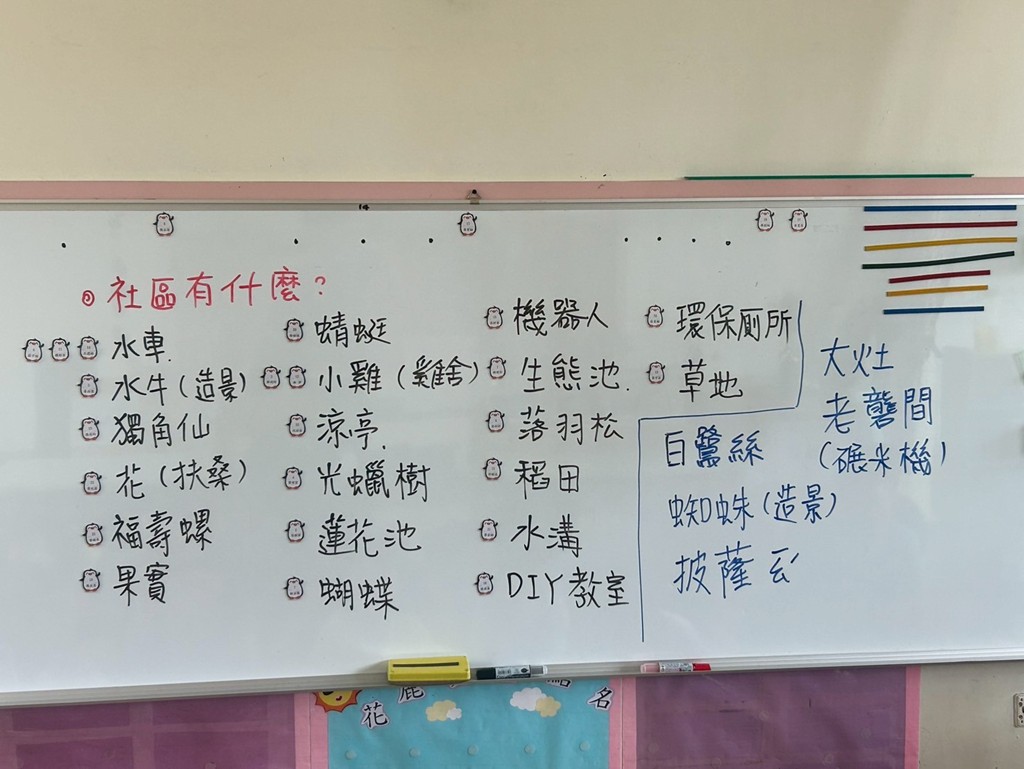 社區有什麼?
水車.
水牛(造景)
獨角仙
花(扶桑)
福壽螺
果實
蜻蜓
小雞(雞舍)
涼亭.
光蠟樹
蓮花池
蝴蝶
機器人
生態池.
落羽松
稻田
水溝
DIY教室
環保廁所
草地
白鷺絲
蜘蛛(造景)
披薩
大灶
老礱間
(碾米機)
花
鹿
點
名